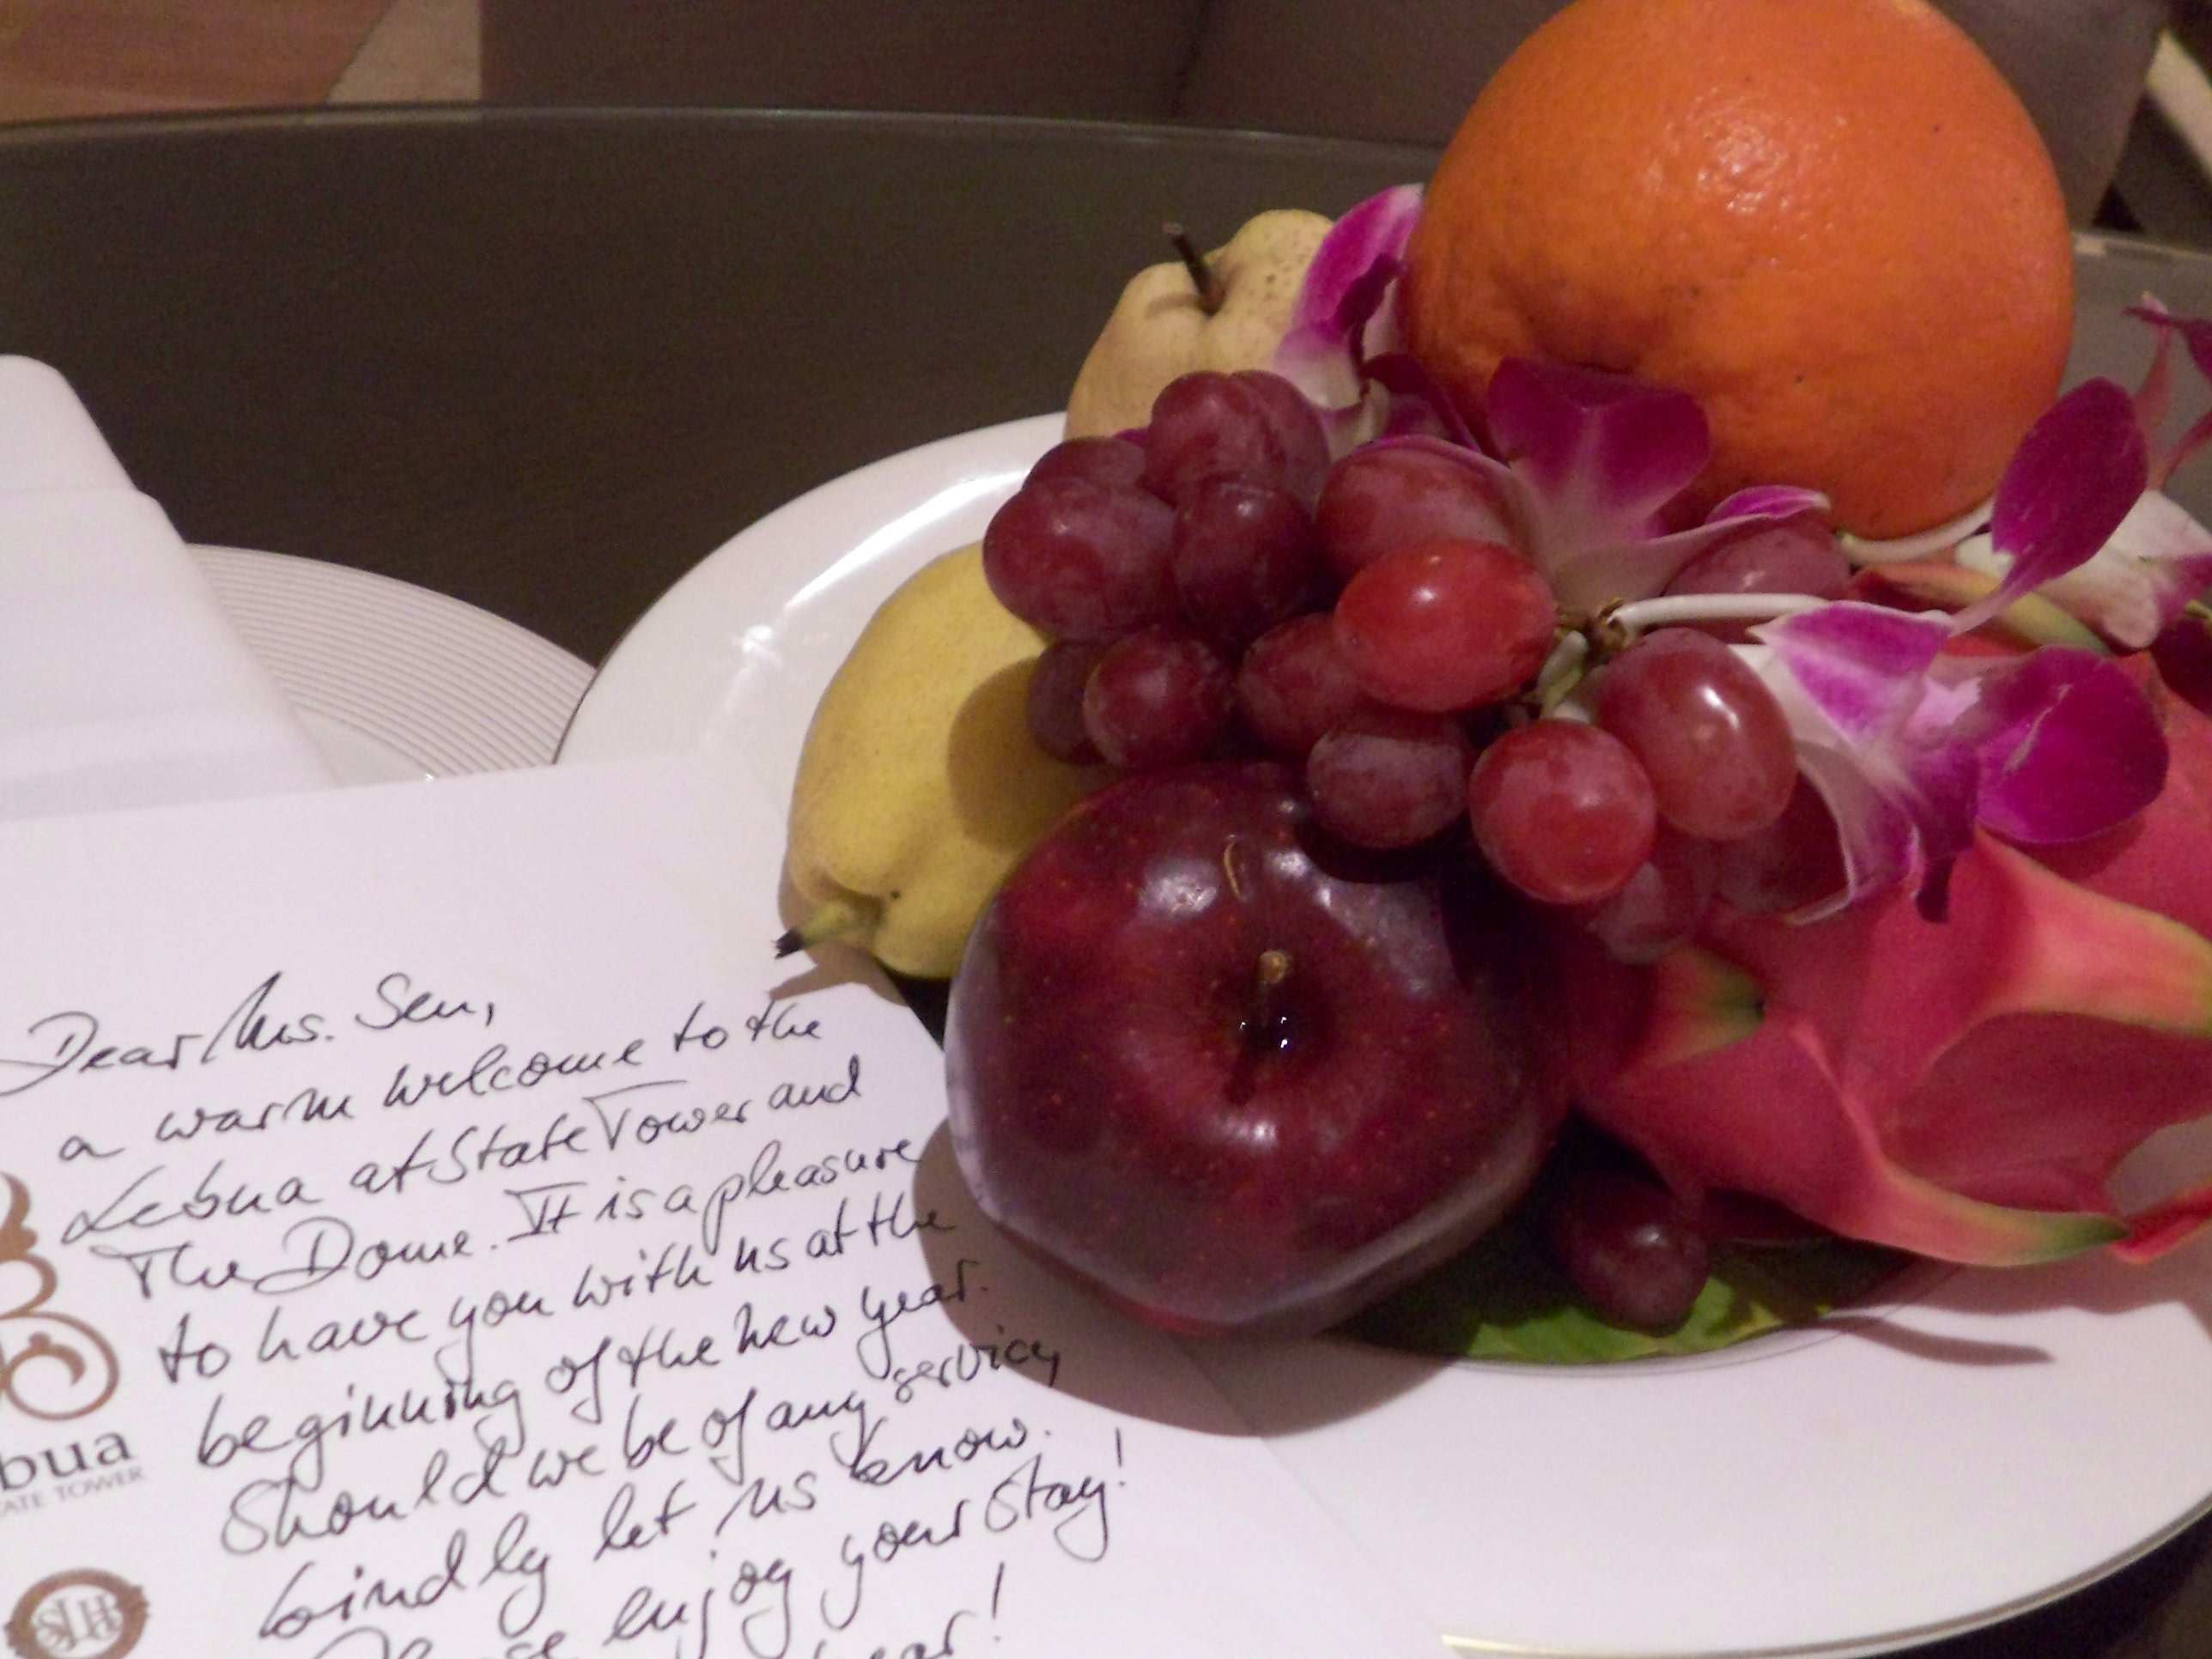 Dear Ms. Sen,
a warm welcome to the
Lebua at State Tower and
The Dome. It is a pleasure
to have you with us at the
beginning of the new year.
Should we be of any service,
kindly let us know.
enjoy your stay!
bua
ATE TOWER